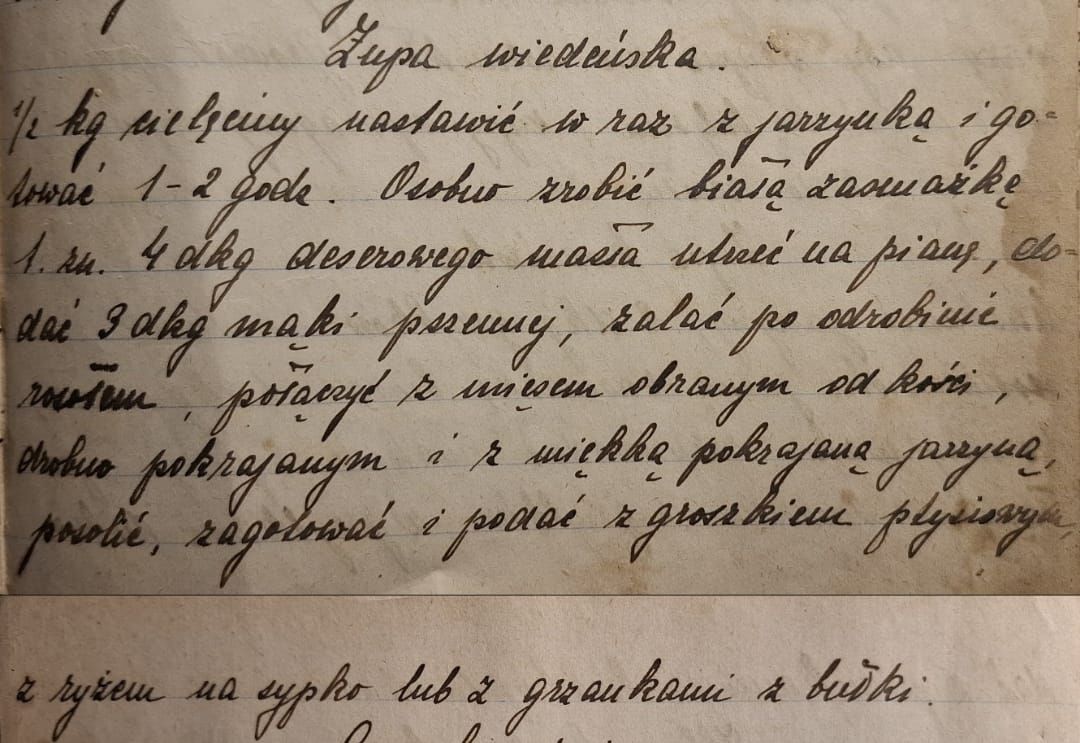 Zupa wiedeńska.
1/2 kg cielęciny nastawić w raz z jarzynką i go-
tować 1-2 godz. Osobno zrobić białą zasmażkę
t. zn. 4 dkg deserowego masła utrzeć na pianę, do-
dać 3 dkg mąki pszennej, zalać po odrobinie
rosołem, połączyć z mięsem obranym od kości,
drobno pokrajanym i z miękką pokrajaną jarzyną,
posolić, zagotować i podać z groszkiem ptysiowym,
z ryżem na sypko lub z grzankami z bułki.